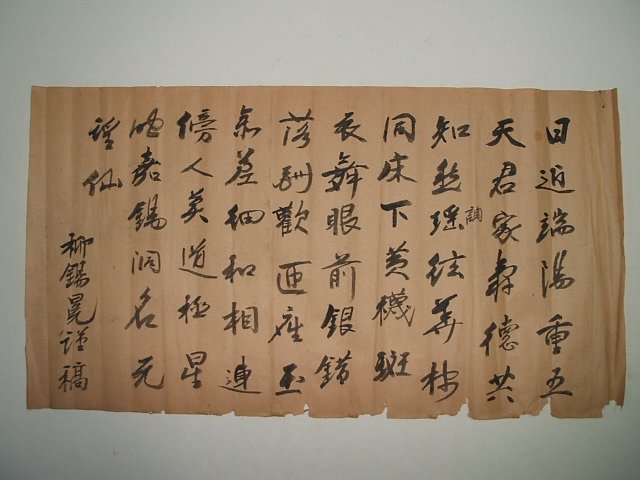 日近端陽重五
天君家壽德共
知然瑤絃
調
同床下機斑
衣舞眼前銀錯
落酬歡匝座玉
參差細和相連
傍人莫道極星
晦嘉錫洞名元
仙
柳錫冕謹稿